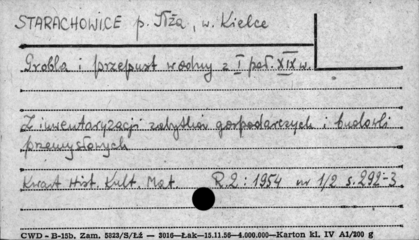 STARACHOWICE p. Iłża, w. Kielce
Grobla i przepust wodny z I poł. XIX w.
Z inwentaryzacji zabytków gospodarczych i budowli
przemysłowych
Kwart. Hist. Kult. Mat. R.2: 1954 nr 1/2 s. 292-3
CWD - B-15b. Zam. 5823/S/Łż — 3016—Łak—15.11.55—4.000.000—Karton kl. IV A1/200 g